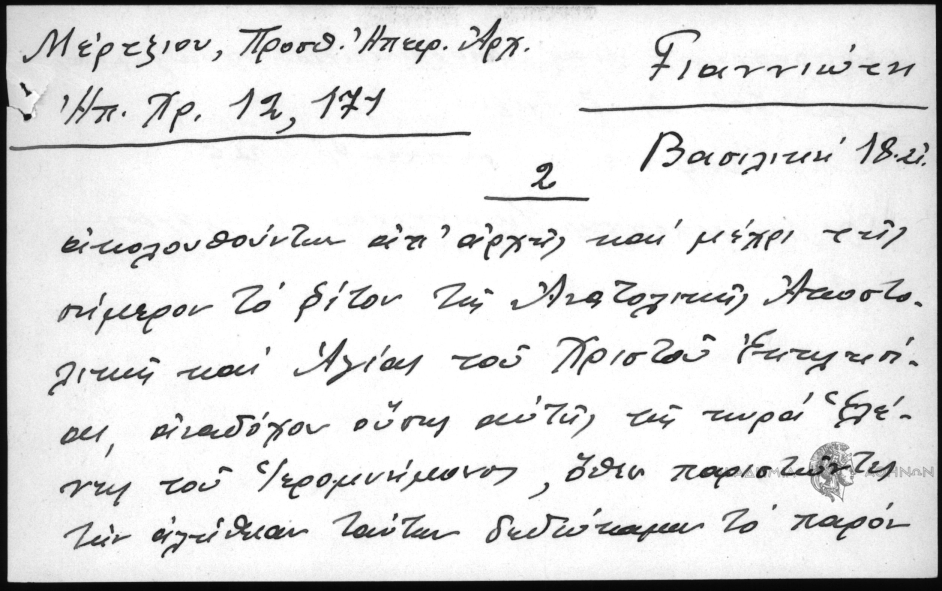 Μέρτζιου, Προσθ. Ἠπειρ. Ἀρχ.
Ἠπ. Χρ. 12, 171
Γιαννιώτη
Βασιλική 18.
2
ἀκολουθούντων ἀπ' ἀρχῆς καί μέχρι τῆς
σήμερον τό ρίτον τῆς Ἀνατολικῆς Ἀποστο-
λικῆς καί Ἁγίας τοῦ Χριστοῦ Ἐκκλησί-
ας, ἀναδόχου οὔσης αὐτῆς τῆς κυρά Ἑλέ-
νης τοῦ Ἱερομνήμονος, ὅθεν παριστῶντες
τήν ἀλήθειαν ταύτην δεδιώκαμεν τό παρόν
ΑΘΗΝΩΝ